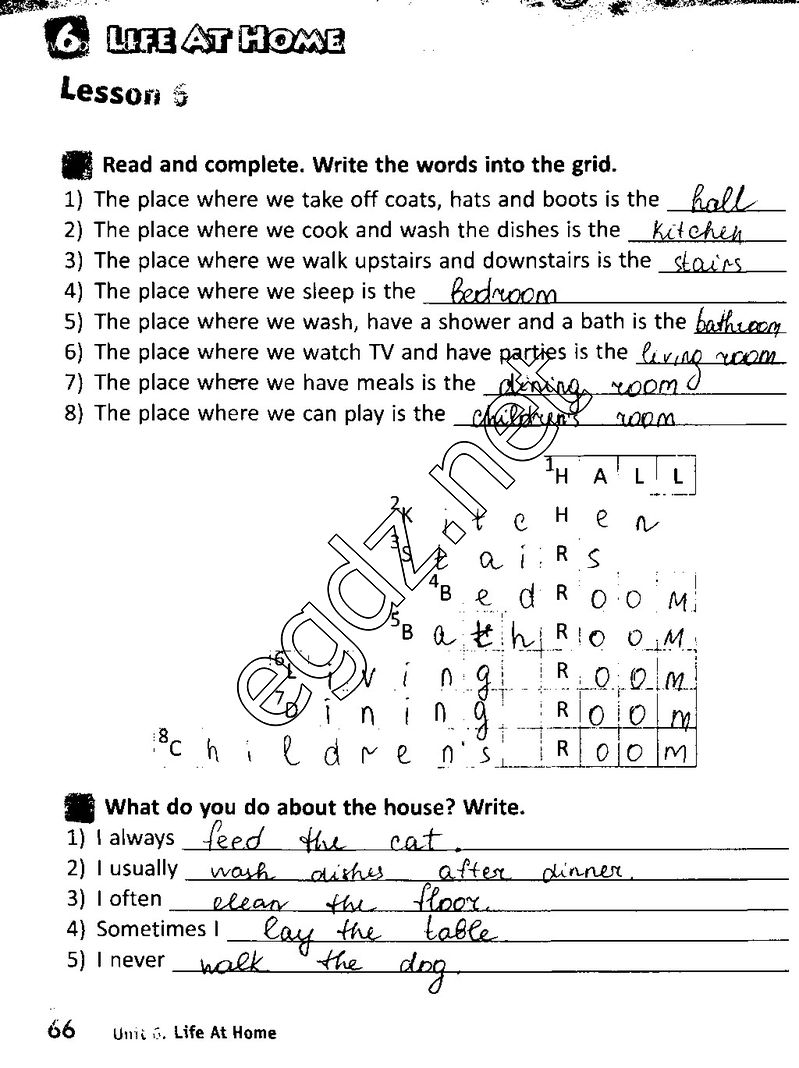 6 LIFE AT HOME
Lesson 6
Read and complete. Write the words into the grid.
1) The place where we take off coats, hats and boots is the hall
2) The place where we cook and wash the dishes is the kitchen
3) The place where we walk upstairs and downstairs is the stairs
4) The place where we sleep is the bedroom
5) The place where we wash, have a shower and a bath is the bathroom
6) The place where we watch TV and have parties is the living room
7) The place where we have meals is the dining room
8) The place where we can play is the children's room
1 H A L L
2 K i t c H e n
3 S t a i R s
4 B e d R O O M
5 B a t h R O O M
6 L i v i n g R O O M
7 D i n i n g R O O M
8 C h i l d r e n ' s R O O M
egdz.net
What do you do about the house? Write.
1) I always feed the cat.
2) I usually wash dishes after dinner.
3) I often clean the floor.
4) Sometimes I lay the table
5) I never walk the dog.
66 Unit 6. Life At Home